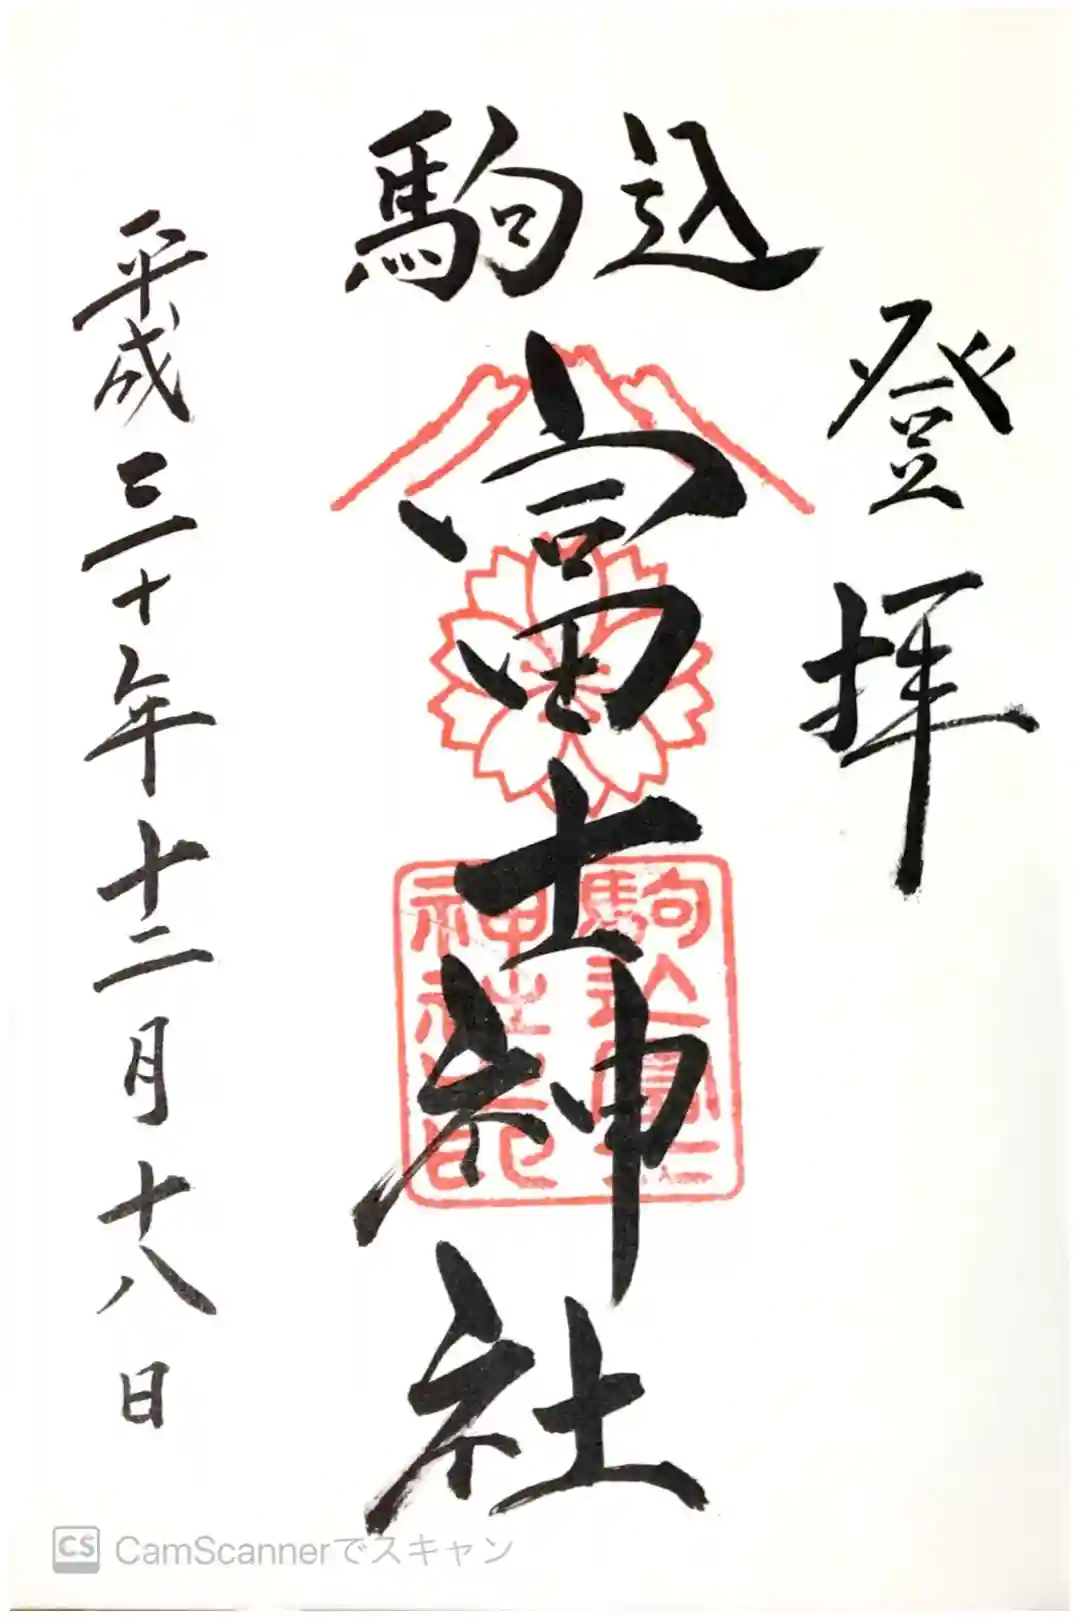 登拝
駒込
富士神社
平成三十年十二月十八日
駒込富士
神社之印
CS CamScannerでスキャン